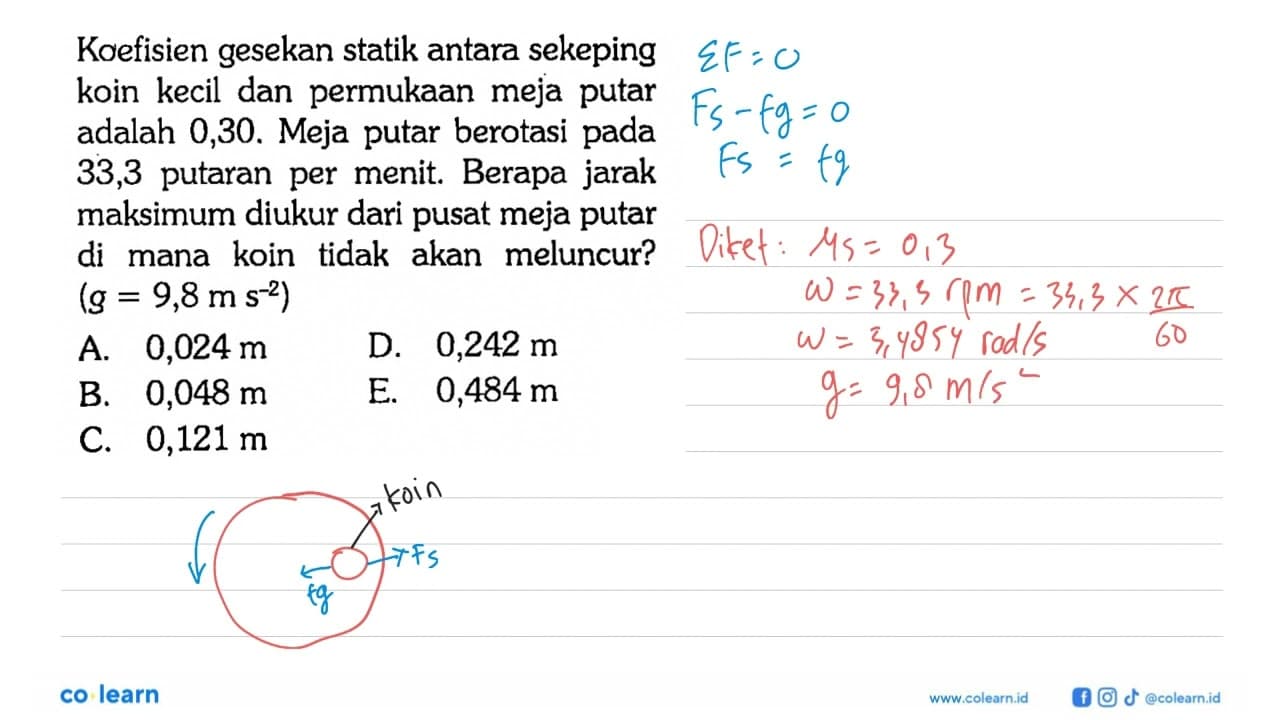 Koefisien gesekan statik antara sekeping
koin kecil dan permukaan meja putar
adalah 0,30. Meja putar berotasi pada
33,3 putaran per menit. Berapa jarak
maksimum diukur dari pusat meja putar
di mana koin tidak akan meluncur?
(g = 9,8 m s⁻²)
A. 0,024 m
D. 0,242 m
B. 0,048 m
E. 0,484 m
C. 0,121 m
ΣF = 0
Fs - fg = 0
Fs = fg
Diket: μs = 0,3
ω = 33,3 rpm = 33,3 × 2π/60
ω = 3,4854 rad/s
g = 9,8 m/s²
koin
Fs
fg
co learn
www.colearn.id
@colearn.id